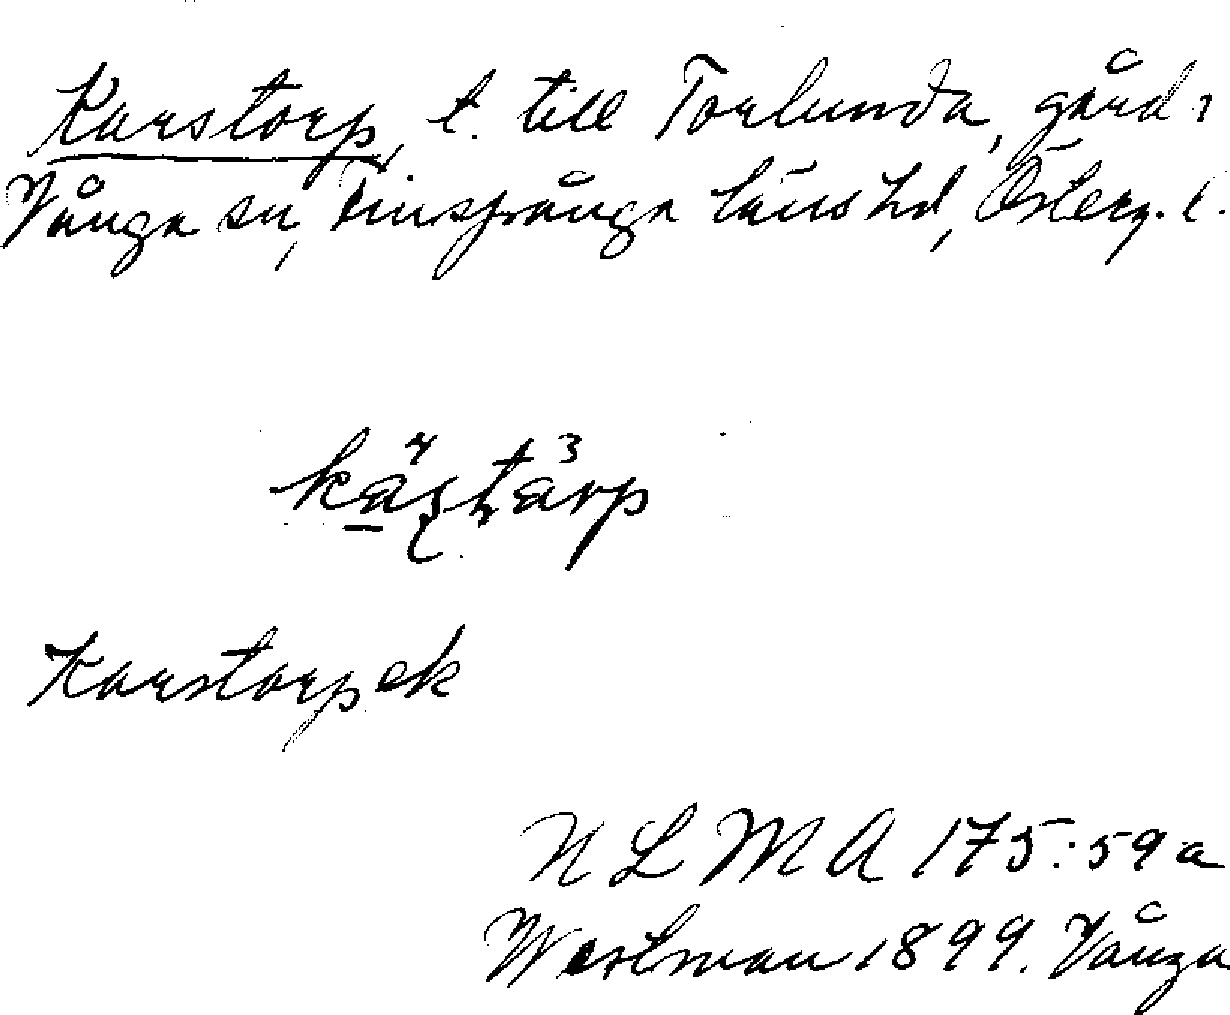 Karstorp, t. till Torlunda, gård i
Vånga sn, Finspånga läns hd, Österg. l.
Karstorp ek
N L M A 175:59a
Westman 1899. Vånga